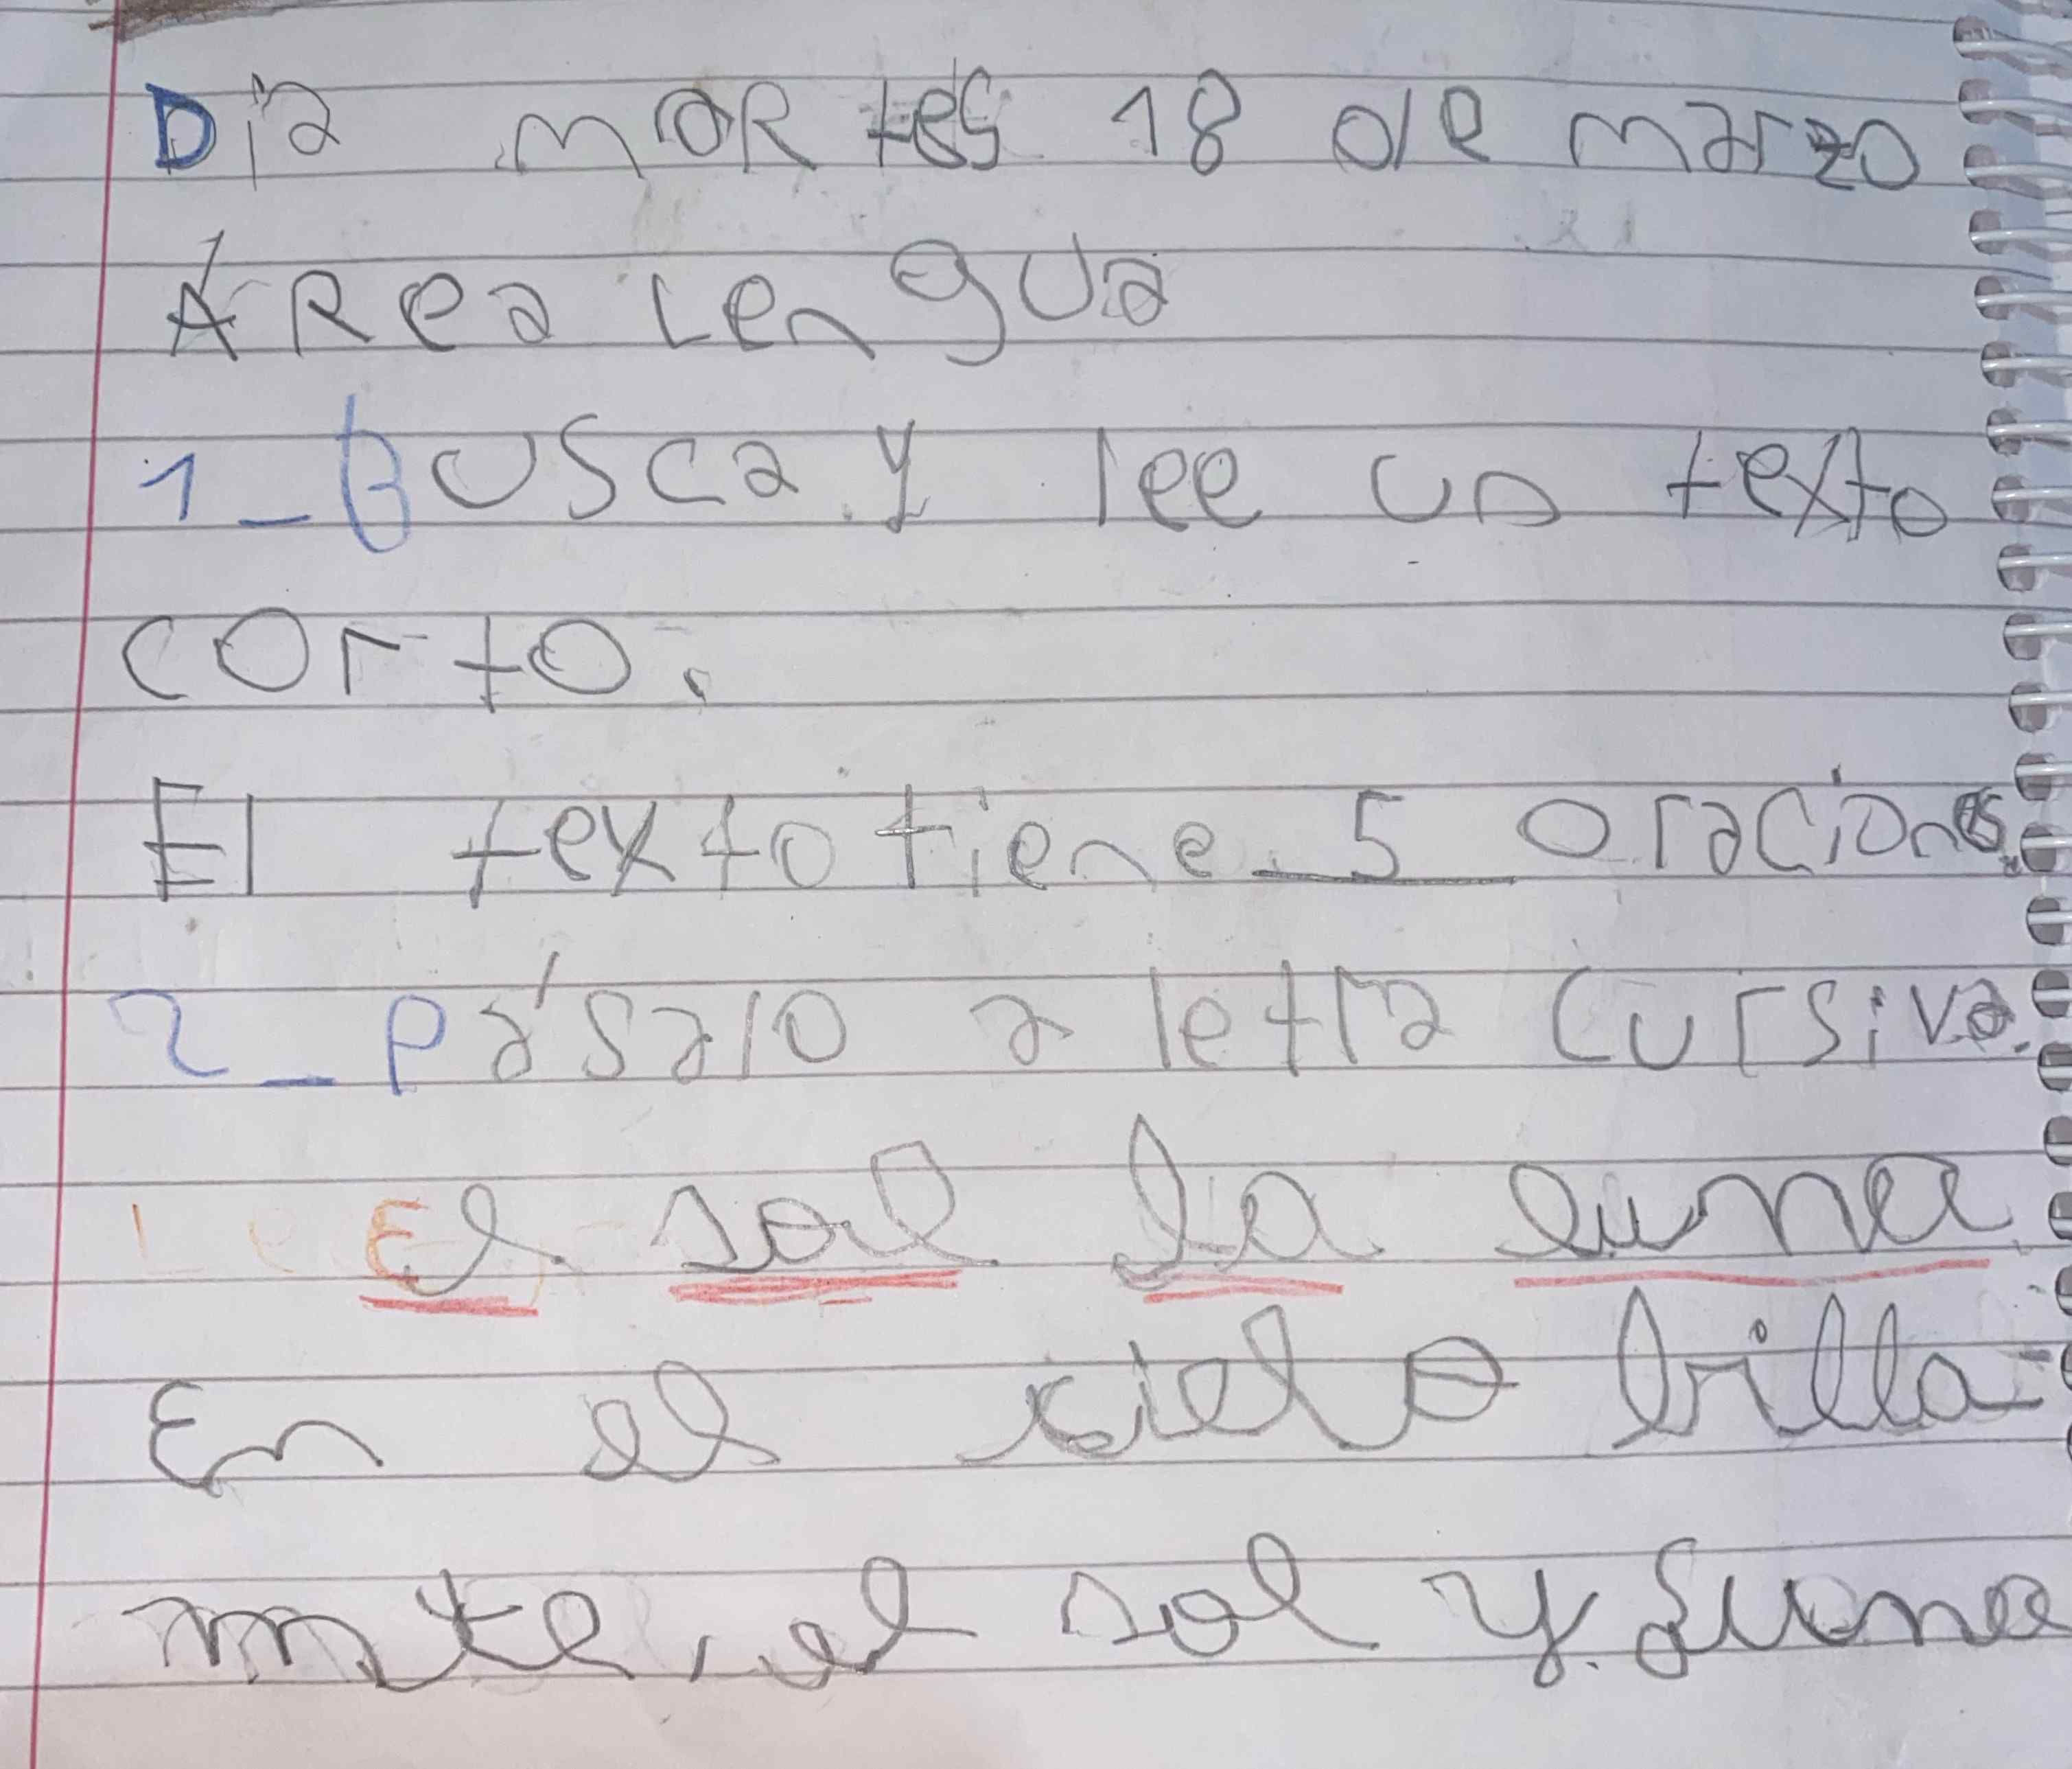 Día martes 18 de marzo
Área Lengua
1_Busca y lee un texto
corto.
El texto tiene 5 oraciones.
2_Pásalo a letra cursiva.
El sol la luna
En el cielo brilla-
nnte, el sol y luna